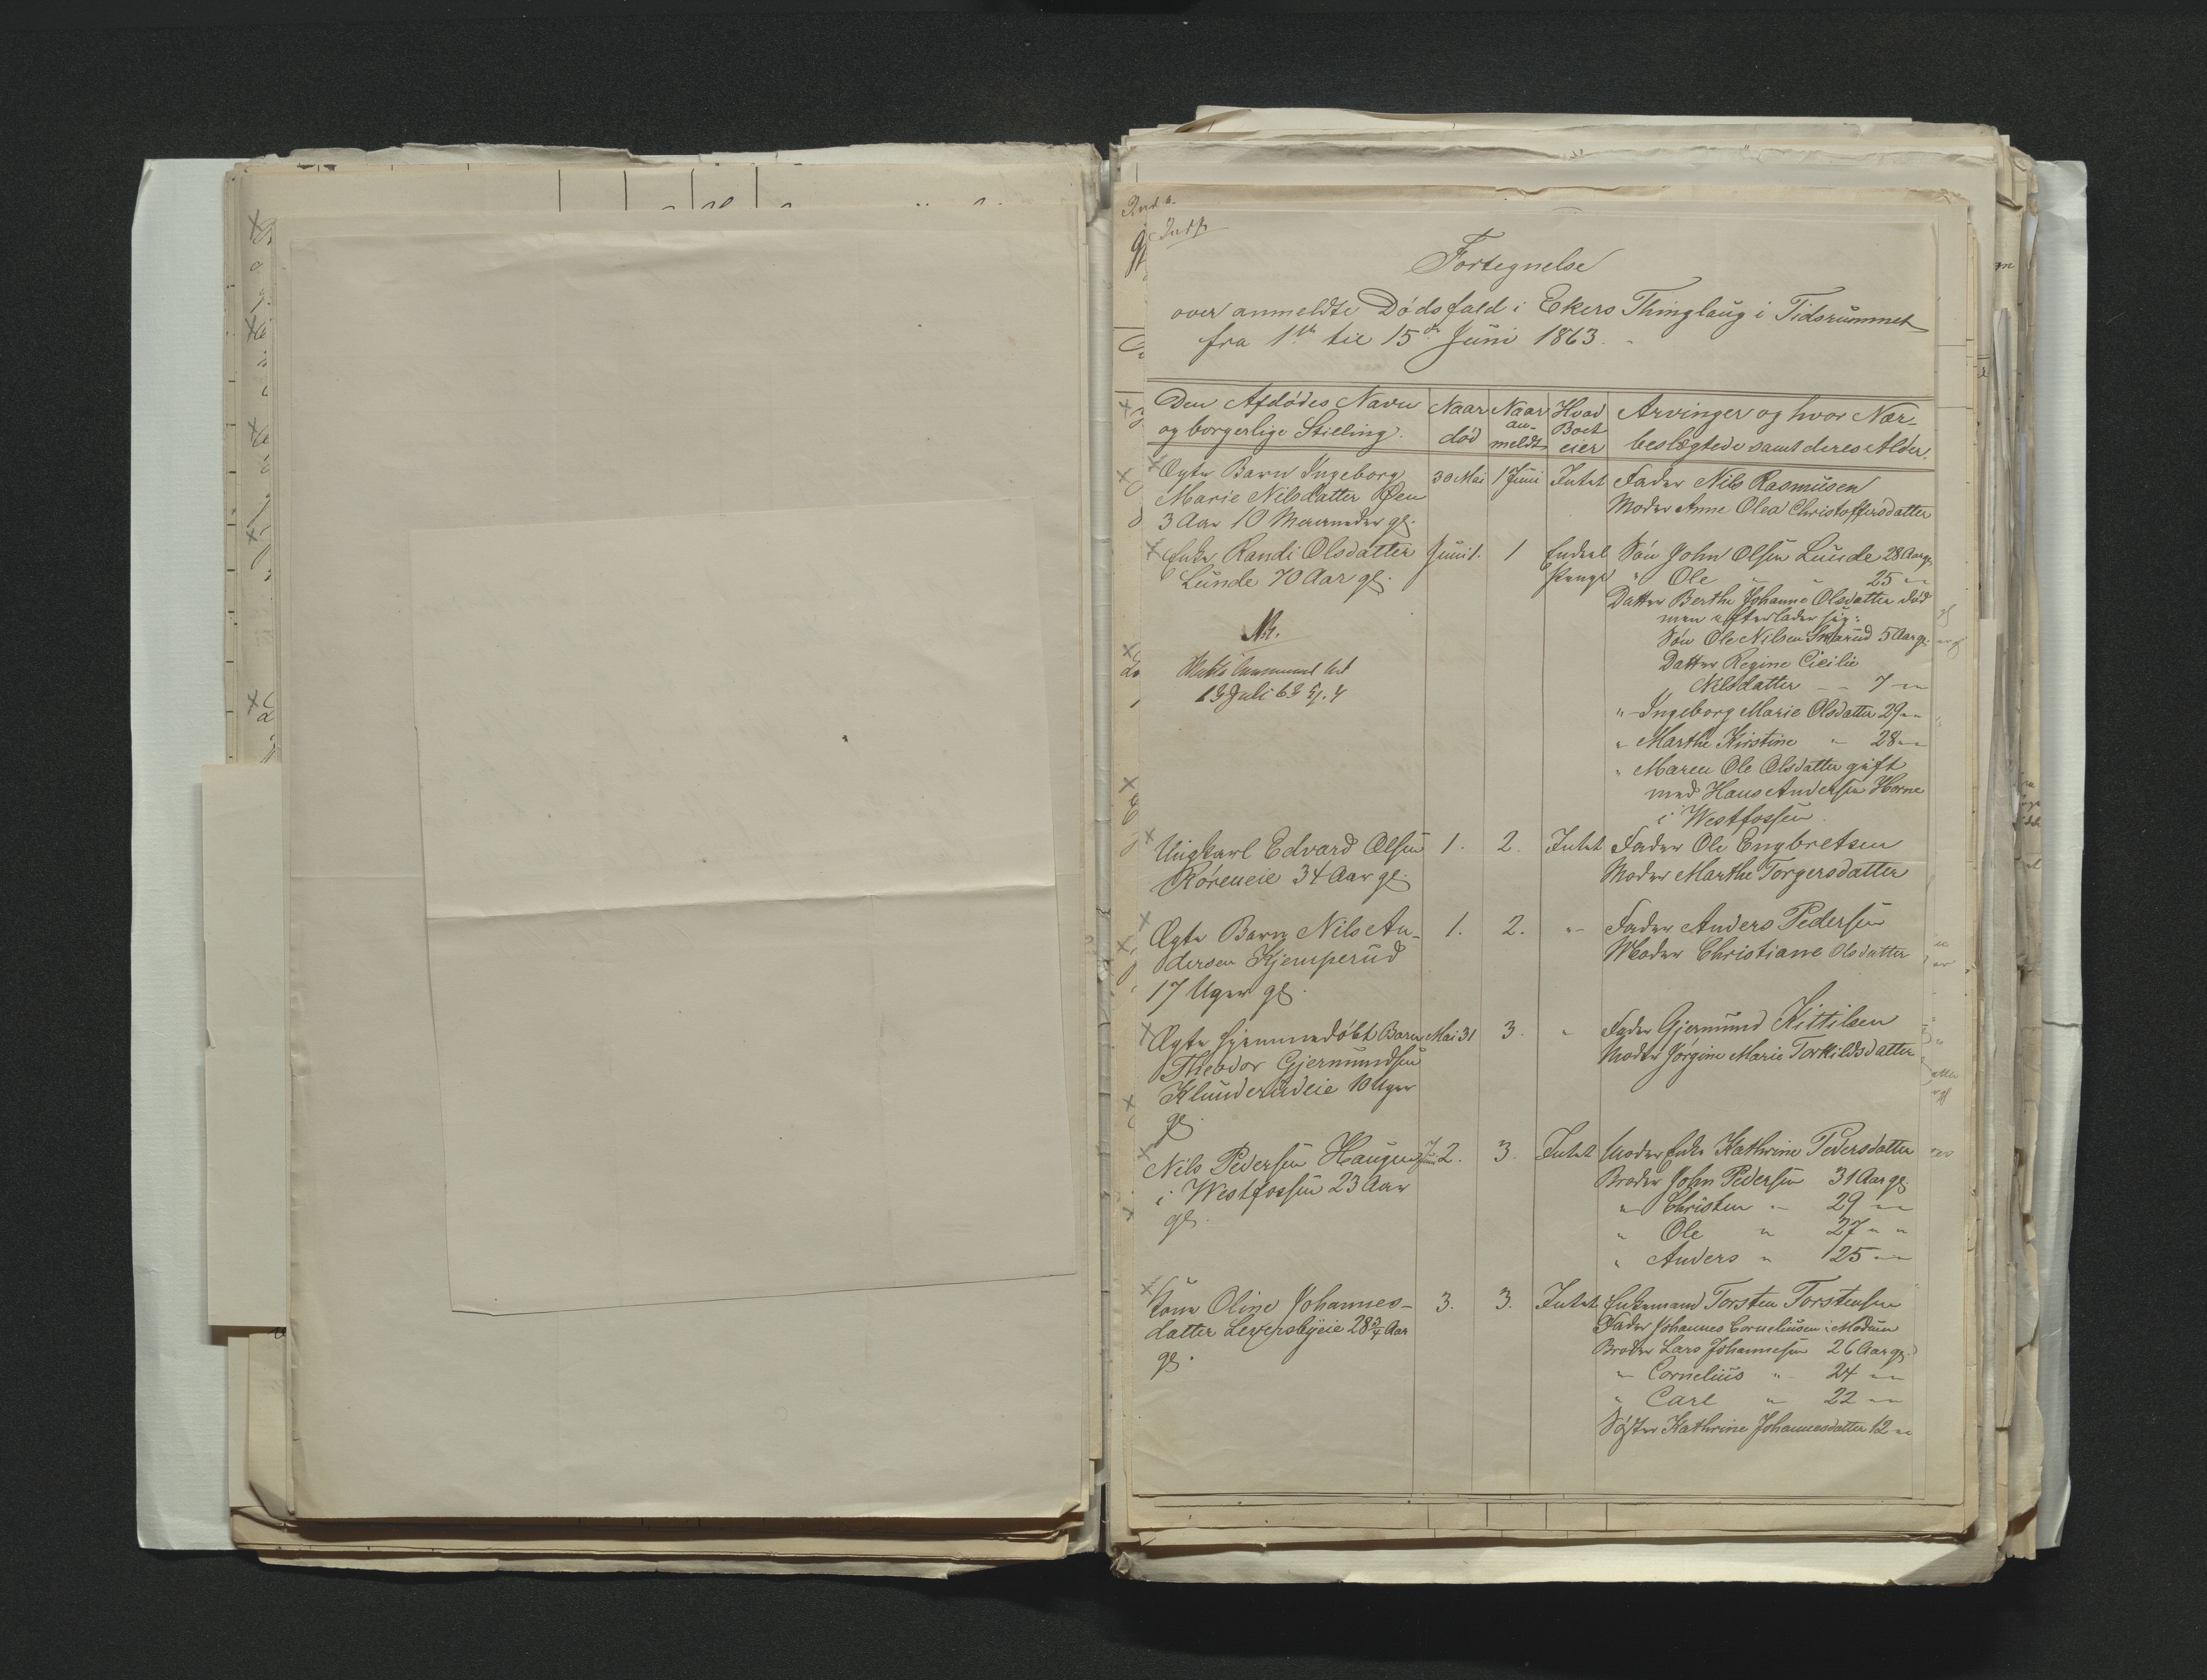 Indf
Fortegnelse
over anmeldte Dødsfald i Ekers Thinglaug i Tidsrummet
fra 1ste til 15de Juni 1863.
Den Afdødes Navn og borgerlige Stilling.
Naar død
Naar an-meldt
Hvad Boet eier
Arvinger og hvor Nær-
beslægtede samt deres Alder.
Ægte Barn Ingeborg
Marie Nilsdatter Øen
3 Aar 10 Maaneder gl.
30 Mai
1 Juni
Intet
Fader Nils Rasmusen
Moder Anne Olea Christoffersdatter
Enke Randi Olsdatter
Lunde 70 Aar gl.
Juni 1.
1
Endeel
Penge
Søn John Olsen Lunde 28 Aar gl.
" Ole " " 25 " "
Datter Berthe Johanne Olsdatter død
men efterlader sig:
Søn Ole Nilsen 5 Aar gl.
Datter Regine Cicilie
Nilsdatter - - 7 " "
" Ingeborg Marie Olsdatter 29 " "
" Marthe Kirstine " 28 " "
" Maren Ole Olsdatter gift
med Hans Andersen Horne
i Westfossen.
13 Juli 63
Ungkarl Edvard Olsen
Røreneie 34 Aar gl.
1.
2.
Intet
Fader Ole Engbretsen
Moder Marthe Torgersdatter
Ægte Barn Nils An-
dersen Kjemperud
17 Uger gl.
1.
2.
"
Fader Anders Pedersen
Moder Christiane Olsdatter
Ægte hjemmedøbt Barn
Theodor Gjermundsen
Klunderudeie 10 Uger
gl.
Mai 31
3.
"
Fader Gjermund Kittilsen
Moder Jørgine Marie Torkildsdatter
Nils Pedersen Haugen
i Westfossen 23 Aar
gl.
Juni 2.
3.
Intet
Moder Enke Kathrine Pedersdatter
Broder John Pedersen 31 Aar gl.
" Christen " 29 " "
" Ole " 27 " "
" Anders " 25 " "
Kone Oline Johannes-
datter Leversbyeie 28 3/4 Aar
gl.
3.
3.
Intet
Enkemand Torsten Torstensen
Fader Johannes Corneliusen i Modum
Broder Lars Johannesen 26 Aar gl.
" Cornelius " 24 " "
" Carl " 22 " "
Søster Kathrine Johannesdatter 12 " "